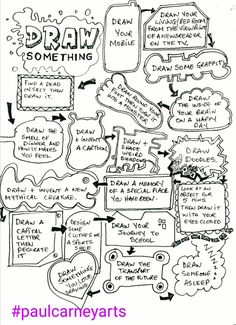 DRAW
SOMETHING
DRAW
YOUR
MOBILE
DRAW YOUR
LIVING/BEDROOM
FROM THE VIEWPOINT
OF A NEWSREADER
ON THE TV.
DRAW SOME GRAFFITI
FIND A DEAD
INSECT THEN
DRAW IT.
DRAW THE
INSIDE OF YOUR
BRAIN ON
A HAPPY
DAY.
DRAW THE
SMELL OF
DINNER AND
HOW IT MAKES
YOU FEEL
DRAW +
INVENT
A CARTOON
DRAW +
SHADE
SOME
WEIRD
SHADOWS
DRAW
DOODLES.
DRAW + INVENT A NEW
MYTHICAL CREATURE.
DRAW A MEMORY
OF A SPECIAL PLACE
YOU HAVE BEEN.
LOOK AT AN
OBJECT FOR
5 MINS.
THEN DRAW IT
WITH YOUR
EYES CLOSED
DRAW A
CAPITAL
LETTER
THEN
DECORATE
IT
DESIGN
SOME
CLOTHES
OR A
SPORTS
SHOE
DRAW YOUR
JOURNEY TO
SCHOOL
DRAW
SOMETHING
YOU
DRAW THE
TRANSPORT
OF THE FUTURE
DRAW
SOMEONE
ASLEEP
#paulcarneyarts